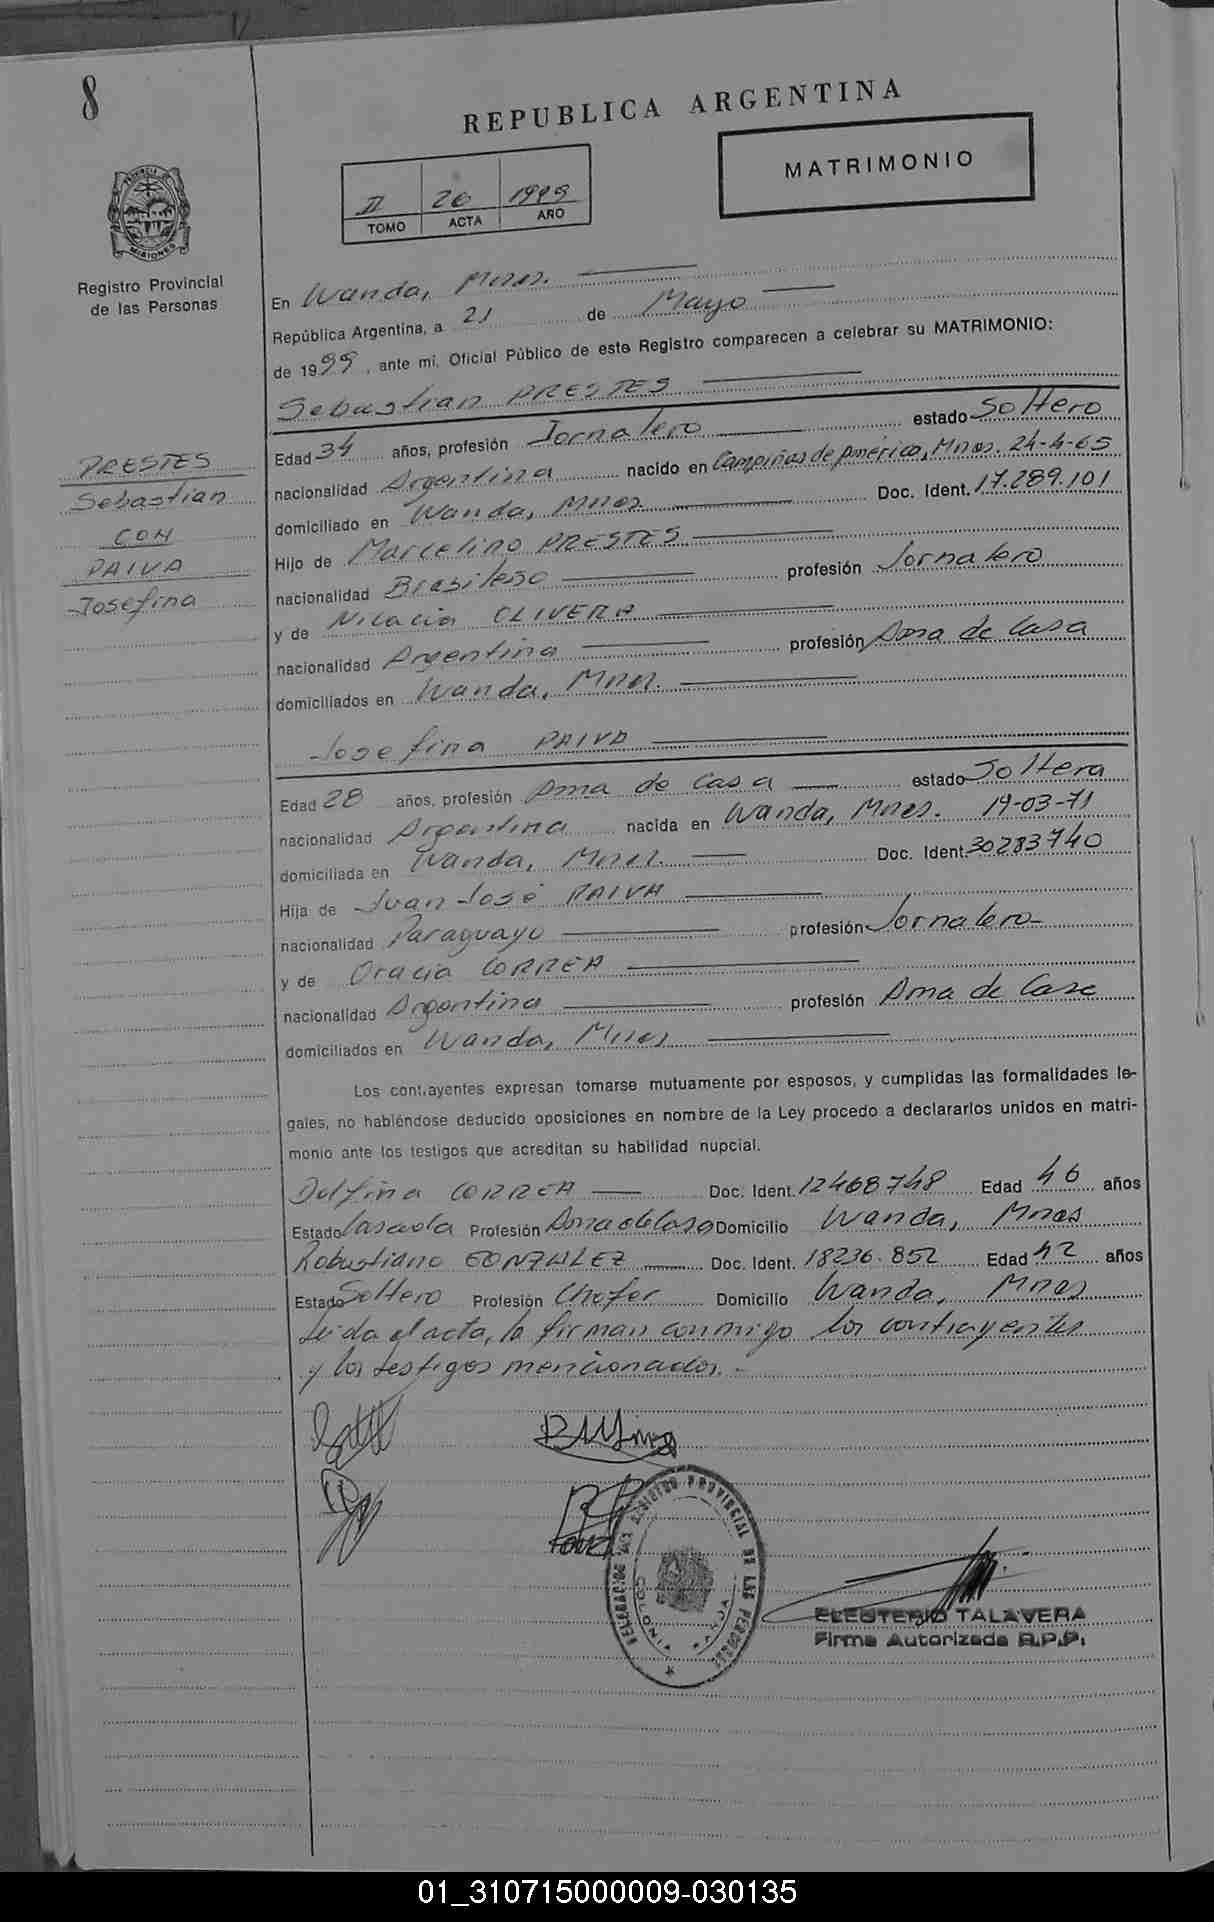 8
REPUBLICA ARGENTINA
MATRIMONIO
II 20 1999
TOMO ACTA AÑO
PROVINCIA DE MISIONES
Registro Provincial
de las Personas
En Wanda, Mnes.
República Argentina, a 21 de Mayo
de 1999, ante mi, Oficial Público de este Registro comparecen a celebrar su MATRIMONIO:
Sebastian PRESTES
PRESTES
Sebastian
CON
PAIVA
Josefina
Edad 34 años, profesión Jornalero estado Soltero
nacionalidad Argentina nacido en Campiñas de América, Mnes. 24-4-65
domiciliado en Wanda, Mnes. Doc. Ident. 17.289.101
Hijo de Marcelino PRESTES
nacionalidad Brasileño profesión Jornalero
y de OLIVERA
nacionalidad Argentina profesión Ama de Casa
domiciliados en Wanda, Mnes.
Josefina PAIVA
Edad 28 años, profesión Ama de Casa estado Soltera
nacionalidad Argentina nacida en Wanda, Mnes. 19-03-71
domiciliada en Wanda, Mnes. Doc. Ident. 30283740
Hija de Juan José PAIVA
nacionalidad Paraguayo profesión Jornalero
y de Oracia CORREA
nacionalidad Argentina profesión Ama de Casa
domiciliados en Wanda, Mnes
Los contrayentes expresan tomarse mutuamente por esposos, y cumplidas las formalidades le-
gales, no habiéndose deducido oposiciones en nombre de la Ley procedo a declararlos unidos en matri-
monio ante los testigos que acreditan su habilidad nupcial.
Delfina CORREA Doc. Ident. 12468748 Edad 46 años
Estado Casada Profesión Ama de Casa Domicilio Wanda, Mnes
Robustiano GONZALEZ Doc. Ident. 18236.852 Edad 42 años
Estado Soltero Profesión Chofer Domicilio Wanda, Mnes
Leida el acta, la firman conmigo los contrayentes
y los testigos mencionados.-
DELEGACION DEL REGISTRO PROVINCIAL DE LAS PERSONAS
COLONIA WANDA
ELEUTERIO TALAVERA
Firma Autorizada R.P.P.
01_310715000009-030135